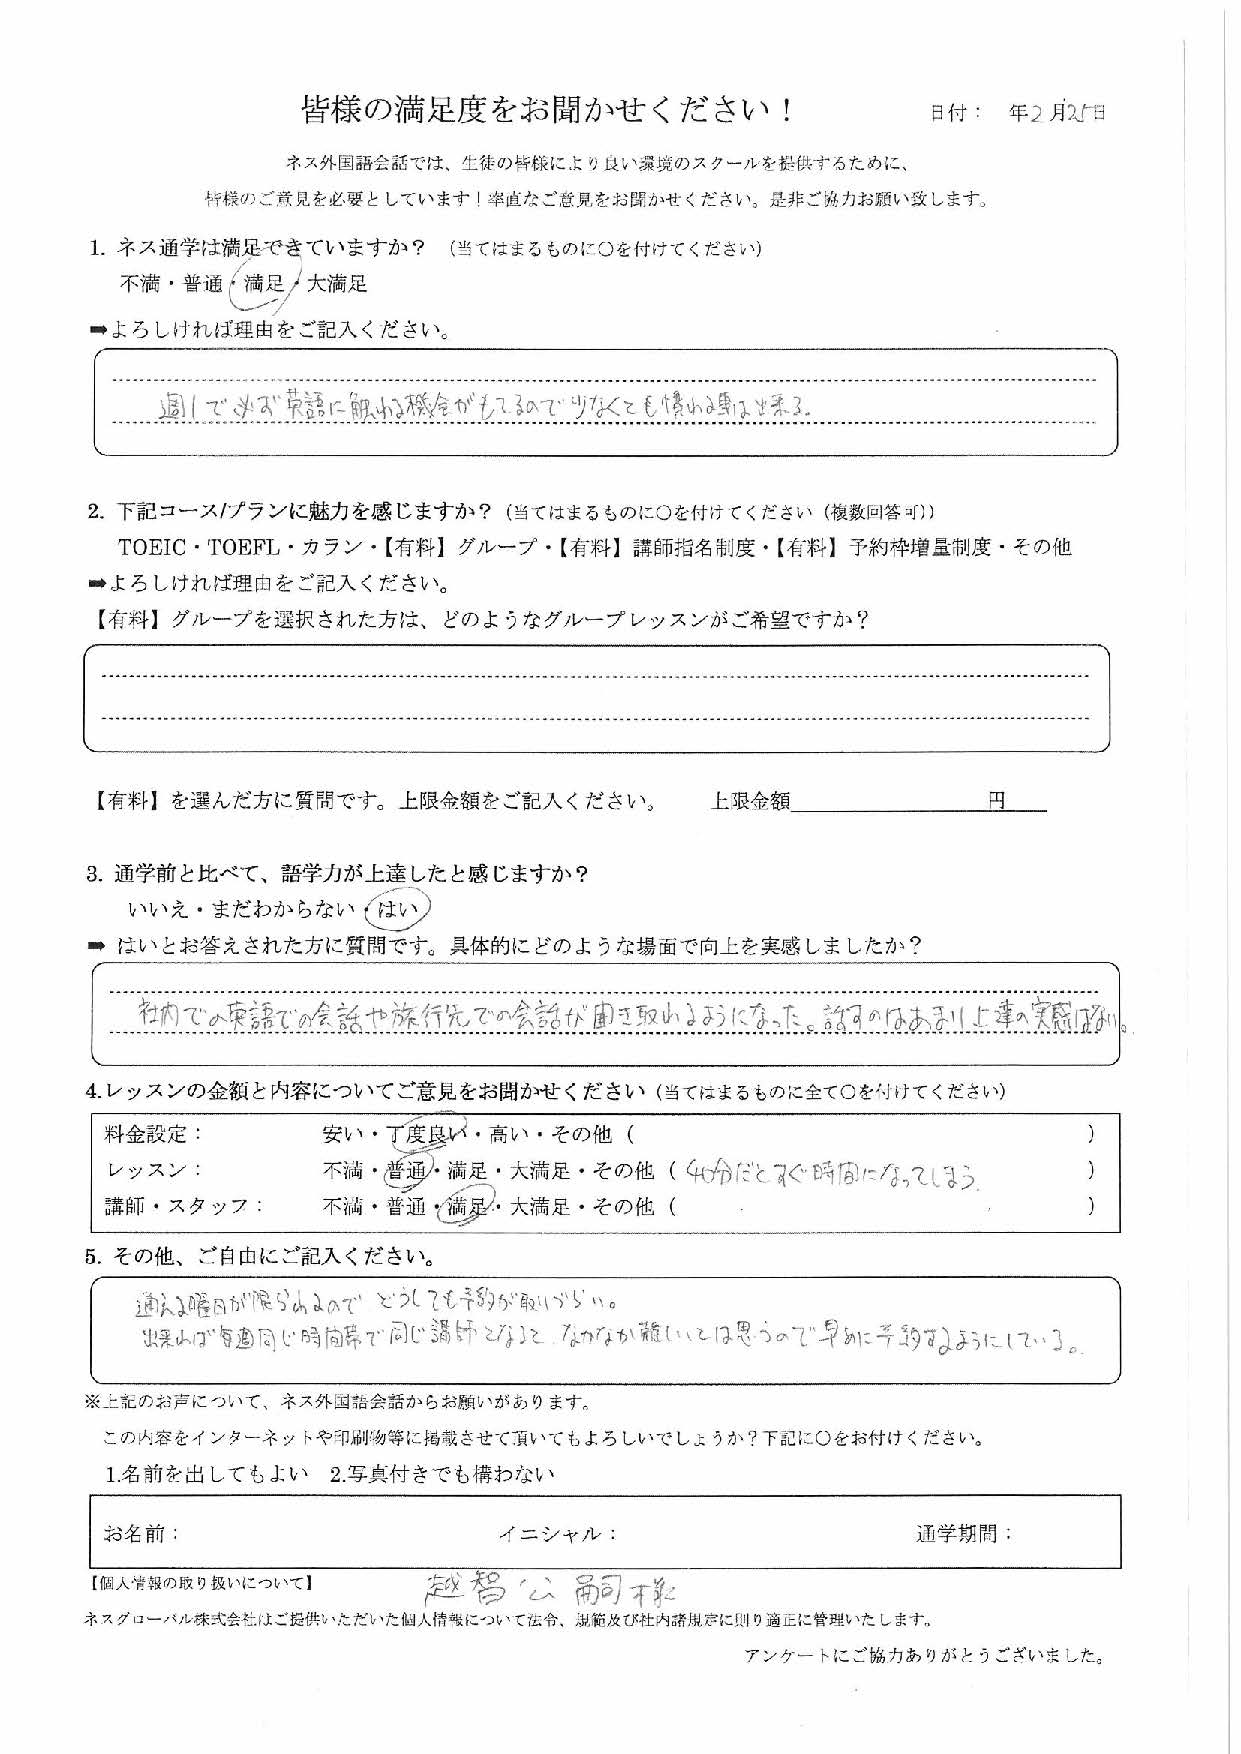 皆様の満足度をお聞かせください！
日付：　年2月25日
ネス外国語会話では、生徒の皆様により良い環境のスクールを提供するために、
皆様のご意見を必要としています！率直なご意見をお聞かせください。是非ご協力お願い致します。
1. ネス通学は満足できていますか？（当てはまるものに○を付けてください）
不満・普通・満足・大満足
➡よろしければ理由をご記入ください。
週1で必ず英語に触れる機会がもてるので少なくとも慣れる事は出来る。
2. 下記コース/プランに魅力を感じますか？（当てはまるものに○を付けてください（複数回答可））
TOEIC・TOEFL・カラン・【有料】グループ・【有料】講師指名制度・【有料】予約枠増量制度・その他
➡よろしければ理由をご記入ください。
【有料】グループを選択された方は、どのようなグループレッスンがご希望ですか？
【有料】を選んだ方に質問です。上限金額をご記入ください。　上限金額　円
3. 通学前と比べて、語学力が上達したと感じますか？
いいえ・まだわからない・はい
➡ はいとお答えされた方に質問です。具体的にどのような場面で向上を実感しましたか？
社内での英語での会話や旅行先での会話が聞き取れるようになった。話すのはあまり上達の実感はない。
4.レッスンの金額と内容についてご意見をお聞かせください（当てはまるものに全て○を付けてください）
料金設定：　安い・丁度良い・高い・その他（　）
レッスン：　不満・普通・満足・大満足・その他（40分だとすぐ時間になってしまう。）
講師・スタッフ：　不満・普通・満足・大満足・その他（　）
5. その他、ご自由にご記入ください。
通える曜日が限られるので どうしても予約が取りづらい。
出来れば毎週同じ時間帯で同じ講師となると、なかなか難しいとは思うので早めに予約するようにしている。
※上記のお声について、ネス外国語会話からお願いがあります。
この内容をインターネットや印刷物等に掲載させて頂いてもよろしいでしょうか？下記に○をお付けください。
1.名前を出してもよい　2.写真付きでも構わない
お名前：　イニシャル：　通学期間：
【個人情報の取り扱いについて】
越智公嗣様
ネスグローバル株式会社はご提供いただいた個人情報について法令、規範及び社内諸規定に則り適正に管理いたします。
アンケートにご協力ありがとうございました。